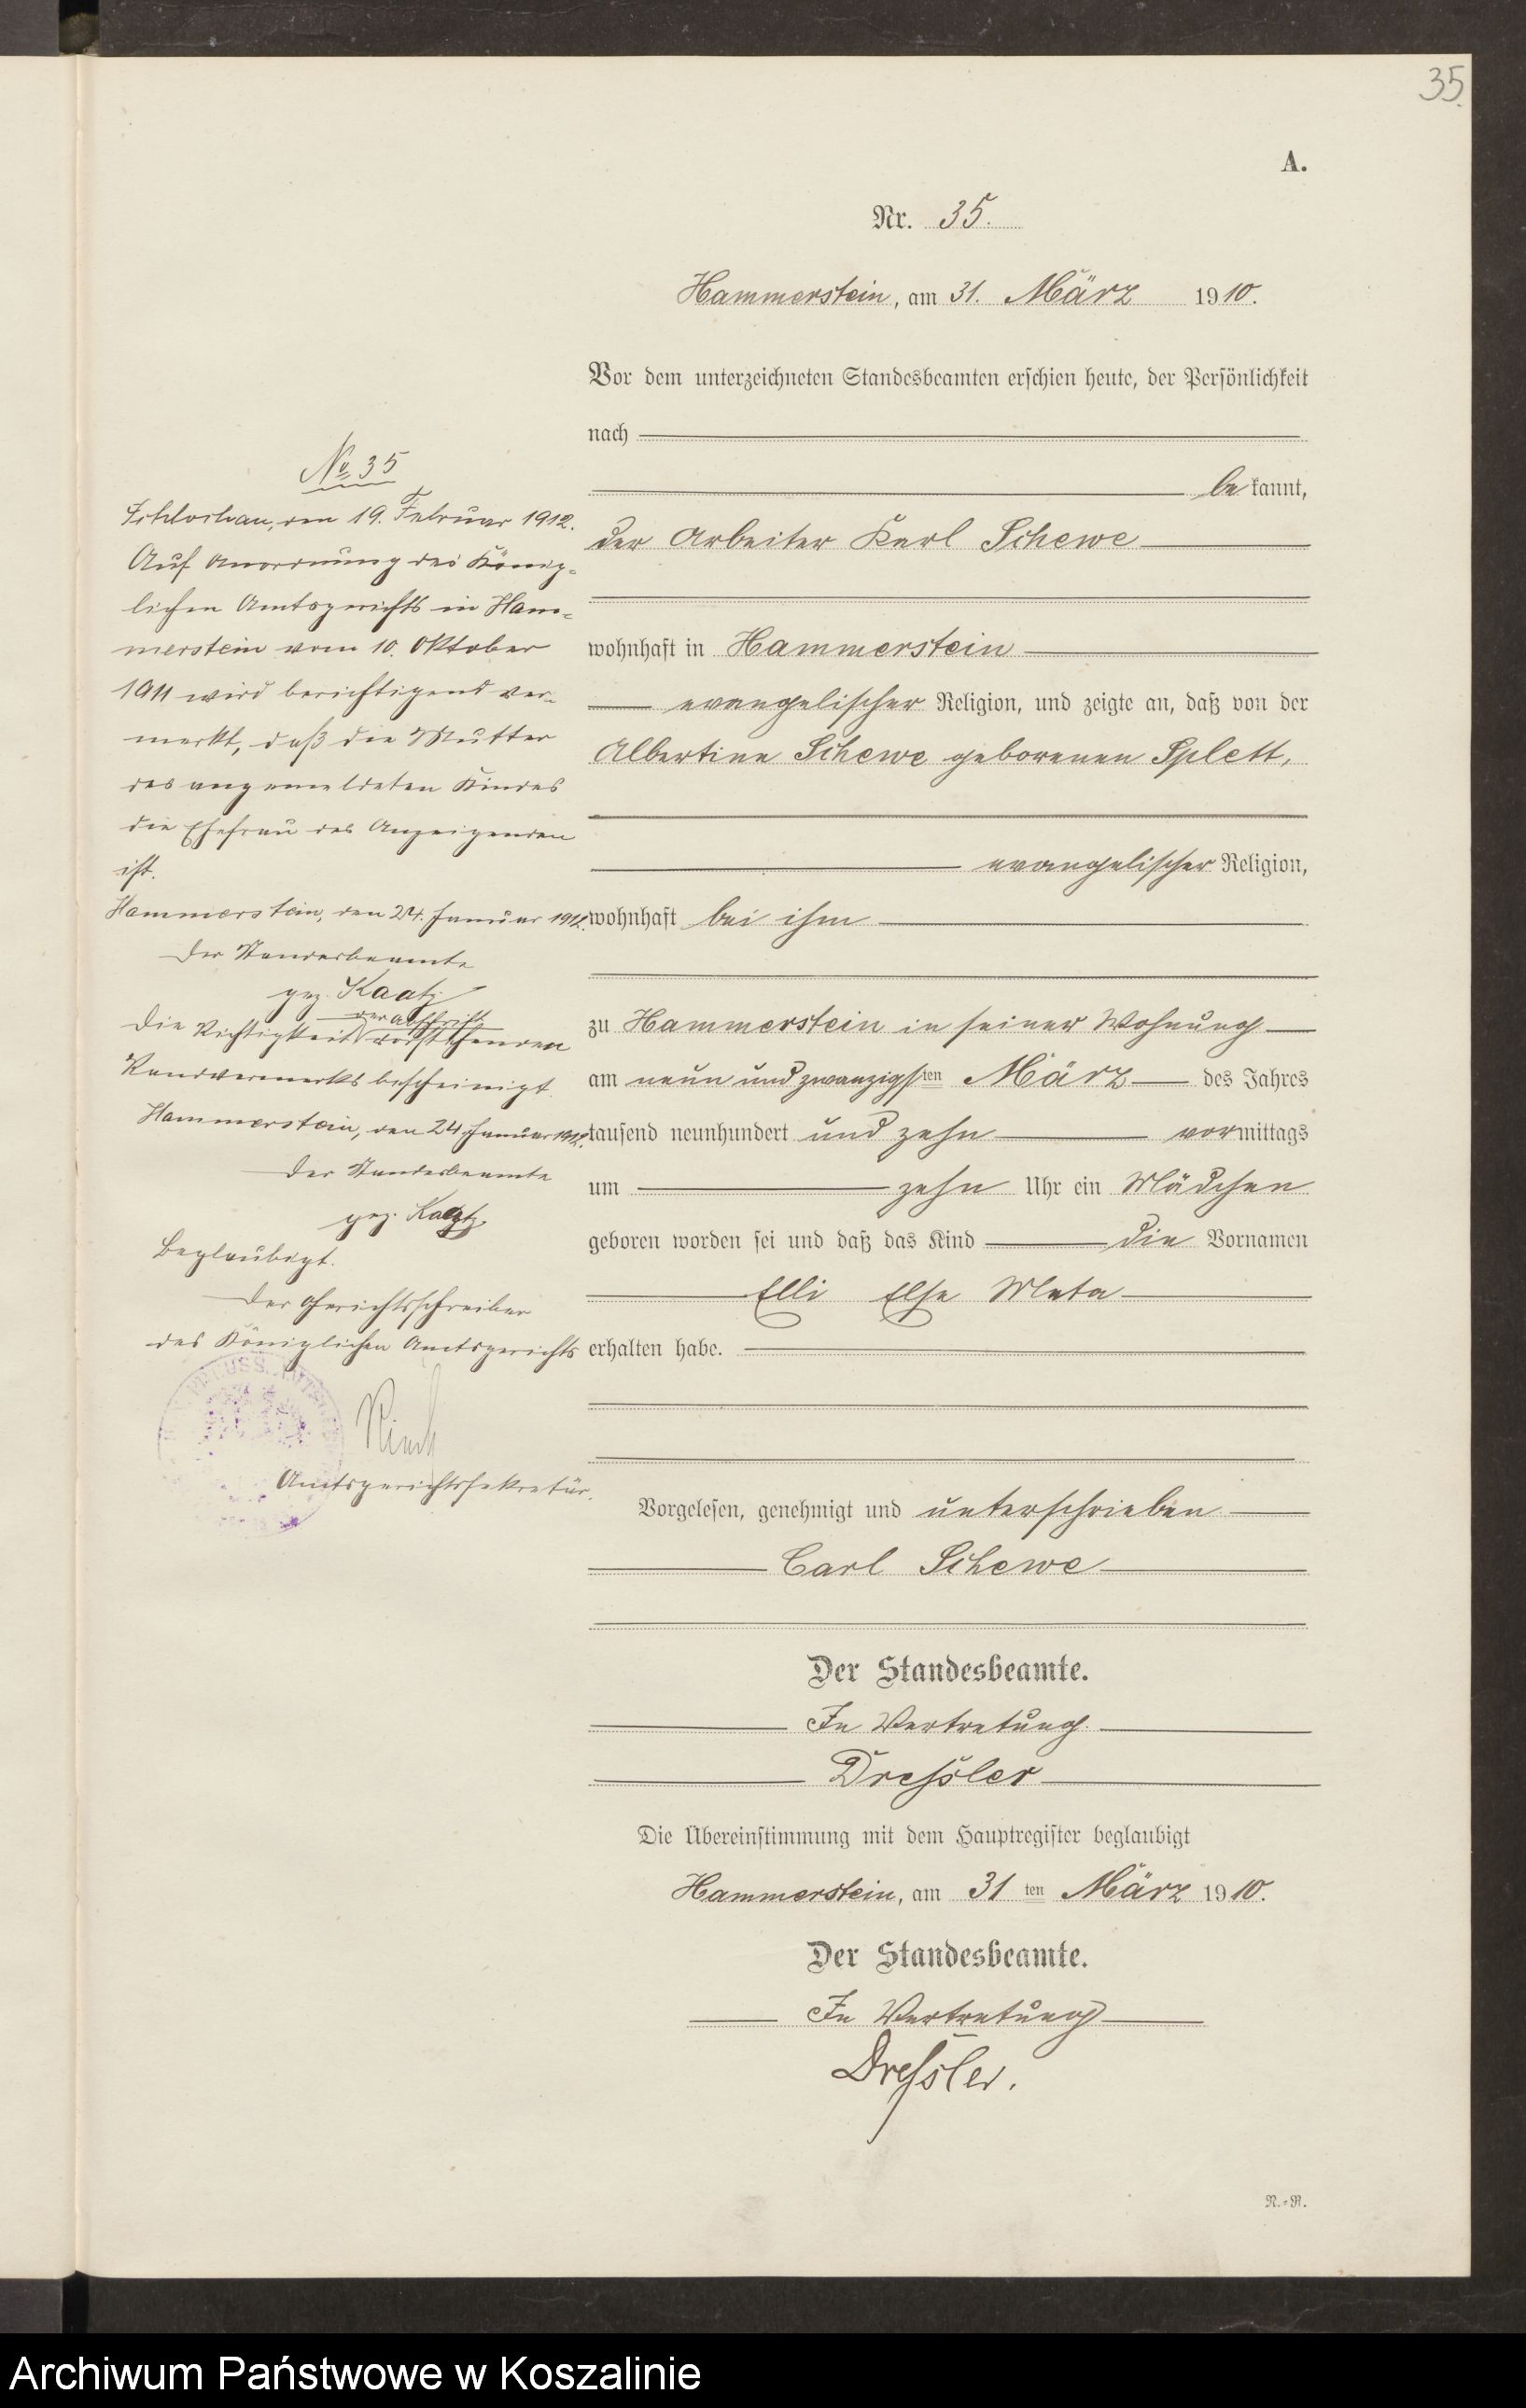 35.
A.
Nr. 35.
Hammerstein, am 31. März 1910.
Vor dem unterzeichneten Standesbeamten erschien heute, der Persönlichkeit
nach
bekannt,
der Arbeiter Karl Schewe
wohnhaft in Hammerstein
evangelischer Religion, und zeigte an, daß von der
Albertine Schewe geborenen Splett,
evangelischer Religion,
wohnhaft bei ihm
zu Hammerstein in seiner Wohnung
am neun und zwanzigsten März des Jahres
tausend neunhundert und zehn vormittags
um zehn Uhr ein Mädchen
geboren worden sei und daß das Kind die Vornamen
Elli Else Meta
erhalten habe.
Vorgelesen, genehmigt und unterschrieben
Carl Schewe
Der Standesbeamte.
In Vertretung.
Dressler
Die Übereinstimmung mit dem Hauptregister beglaubigt
Hammerstein, am 31ten März 1910.
Der Standesbeamte.
In Vertretung
Dressler.
R.=R.
No 35
Schlochau, den 19. Februar 1912.
Auf Anordnung des König-
lichen Amtsgerichts in Ham-
merstein vom 10. Oktober
1911 wird berichtigend ver-
merkt, daß die Mutter
des angemeldeten Kindes
die Ehefrau des Anzeigenden
ist.
Hammerstein, den 24. Januar 1912.
Der Standesbeamte
gez. Kaatz
der Abschrift
Die Richtigkeit vorstehenden
Randvermerks bescheinigt
Hammerstein, den 24. Januar 1912.
Der Standesbeamte
gez. Kaatz.
Beglaubigt.
Der Gerichtsschreiber
des Königlichen Amtsgerichts
Amtsgerichtssekretär.
Archiwum Państwowe w Koszalinie